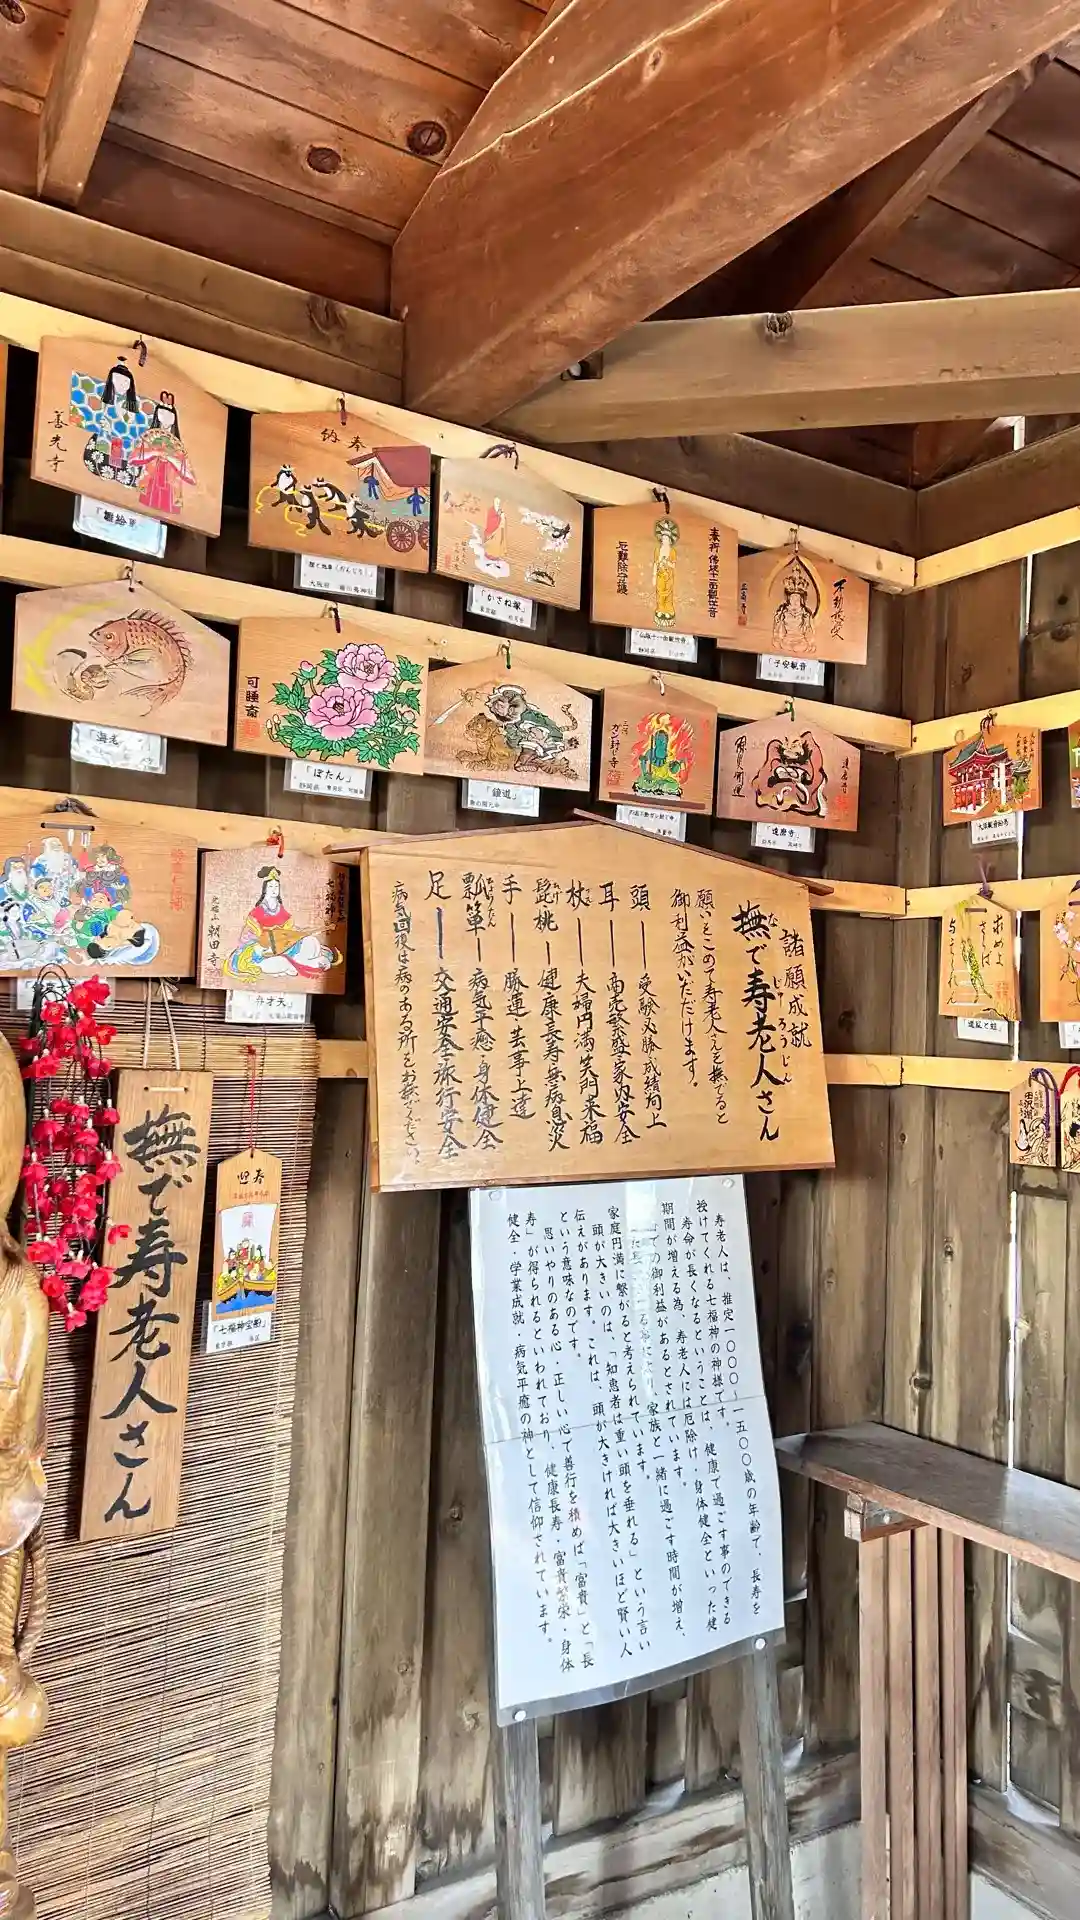 善光寺
「雛絵馬」
奉納
大阪府
「かさね塚」
厄難除守護
「仏陀十一面観世音」
静岡県
「子安観音」
「海老」
可睡斎
「ぼたん」
静岡県
「鍾馗」
三河
ガン封じ寺
達磨寺
開運
「達磨寺」
七福神
朝田寺
「弁才天」
諸願成就
撫で寿老人さん
な
じゅろうじん
願いをこめて寿老人さんを撫でると
御利益がいただけます。
頭―受験必勝・成績向上
耳―商売繁盛・家内安全
杖―夫婦円満・笑門来福
つえ
髭桃―健康長寿・無病息災
ひげ
手―勝運・芸事上達
瓢箪―病気平癒・身体健全
ひょうたん
足―交通安全・旅行安全
病気回復は病のある所をお撫でください。
撫で寿老人さん
迎春
「七福神宝船」
東京都 港区
寿老人は、推定一〇〇〇~一五〇〇歳の年齢で、長寿を
授けてくれる七福神の神様です。
寿命が長くなるということは、健康で過ごす事のできる
期間が増える為、寿老人には厄除け・身体健全といった健
での御利益があるとされています。
家族と一緒に過ごす時間が増え、
家庭円満に繋がると考えられています。
頭が大きいのは、「知恵者は重い頭を垂れる」という言い
伝えがあります。これは、頭が大きければ大きいほど賢い人
という意味なのです。
思いやりのある心・正しい心で善行を積めば「富貴」と「長
寿」が得られるといわれており、健康長寿・富貴繁栄・身体
健全・学業成就・病気平癒の神として信仰されています。
求めよ
さらば
与えられん
田沢湖